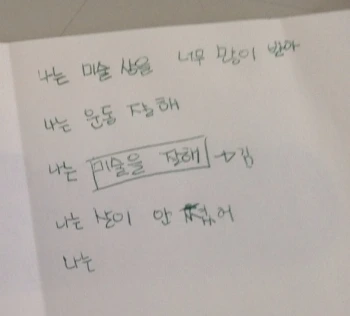 나는 미술 상을 너무 많이 받아
나는 운동 잘해
나는 미술을 잘해
나는 살이 안 쪘어
나는